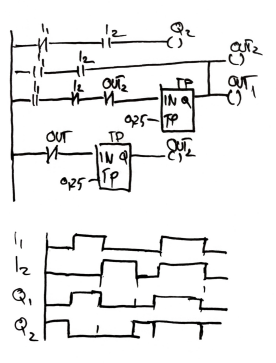 I₁ I₂ Q₂
I₁ I₂ OUT₂
I₁ I₂ OUT₂ TP OUT₁
IN Q
0,25 TP
OUT TP OUT₂
IN Q
0,25 TP
I₁
I₂
Q₁
Q₂